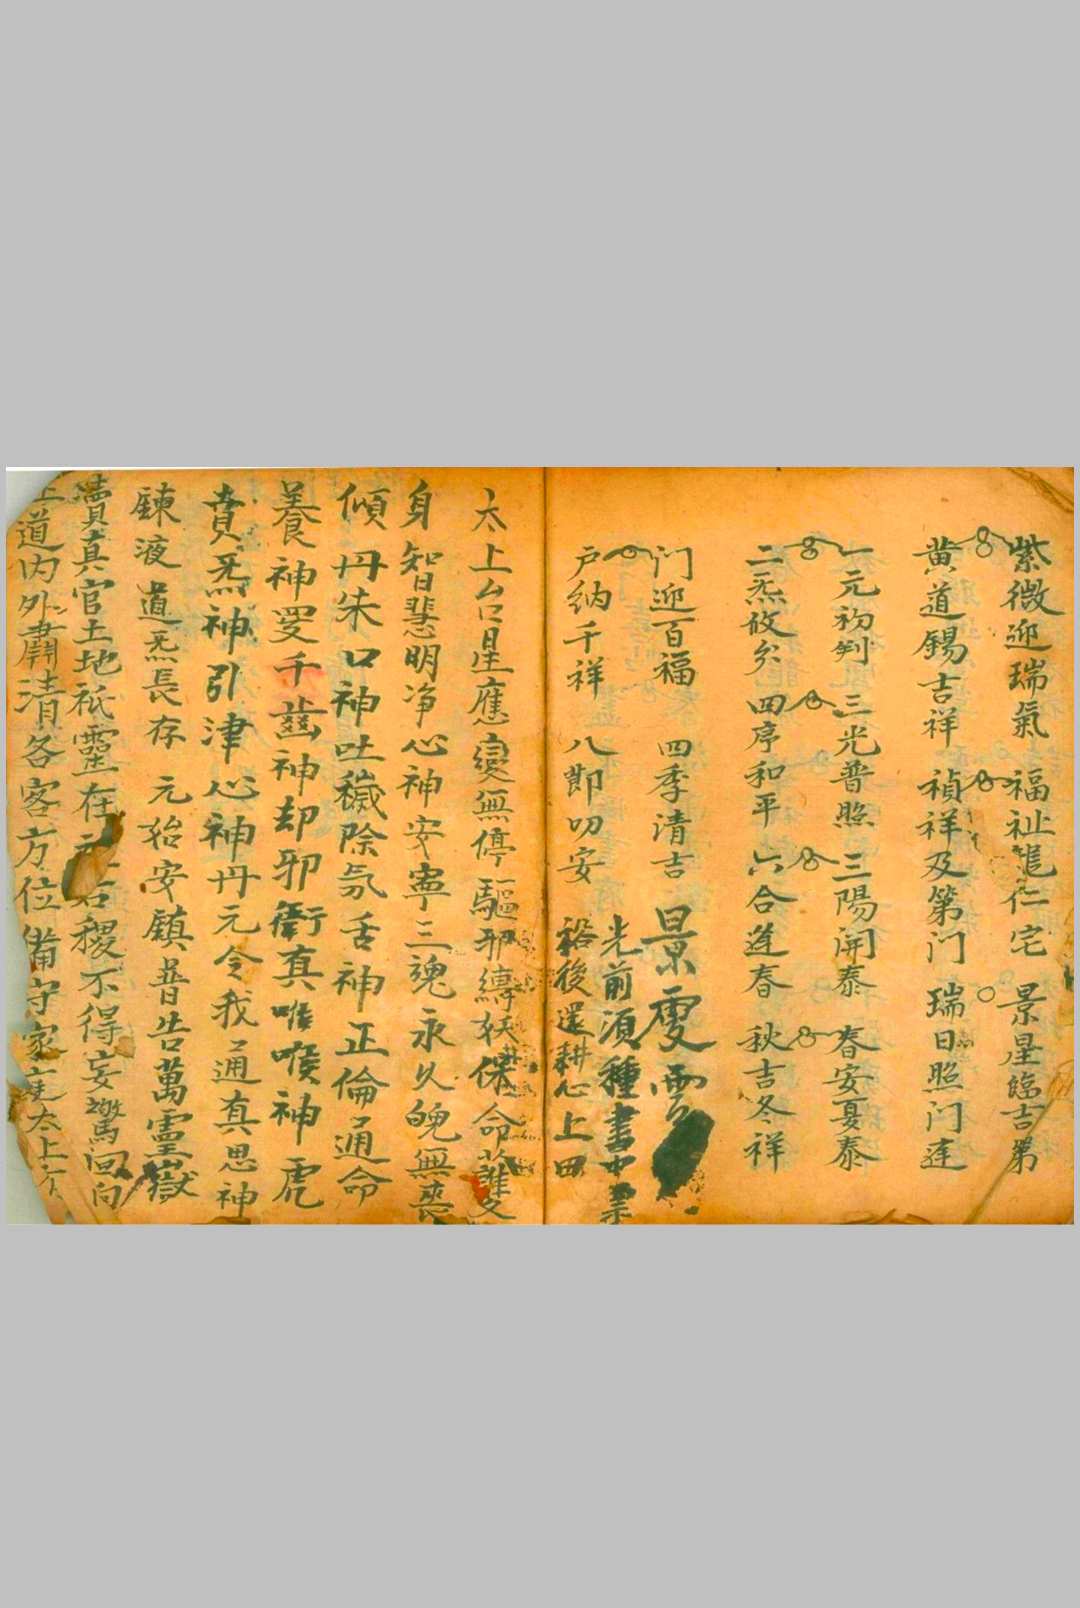 紫微迎瑞氣　福祉毓仁宅　景星臨吉第
黄道錫吉祥　禎祥及第门　瑞日照门逹
一元初判　三光普照　三陽開泰　春安夏泰
二炁攸分　四序和平　六合逢春　秋吉冬祥
门迎百福　四季清吉
户纳千祥　八節叨安
景雯雲
光前須種書中業
裕後還耕心上田
太上台星應變無停驅邪縛妖保命護
身智慧明净心神安寧三魂永久魄無喪
傾丹朱口神吐穢除氛舌神正倫通命
養神罗千齒神却邪衛真喉喉神虎
賁炁神引津心神丹元令我通真思神
錬液道炁長存　元始安鎮普告萬靈嶽
瀆真官土地祇靈在社稷不得妄驚回向
正道内外肅清各客方位備守家庭太上